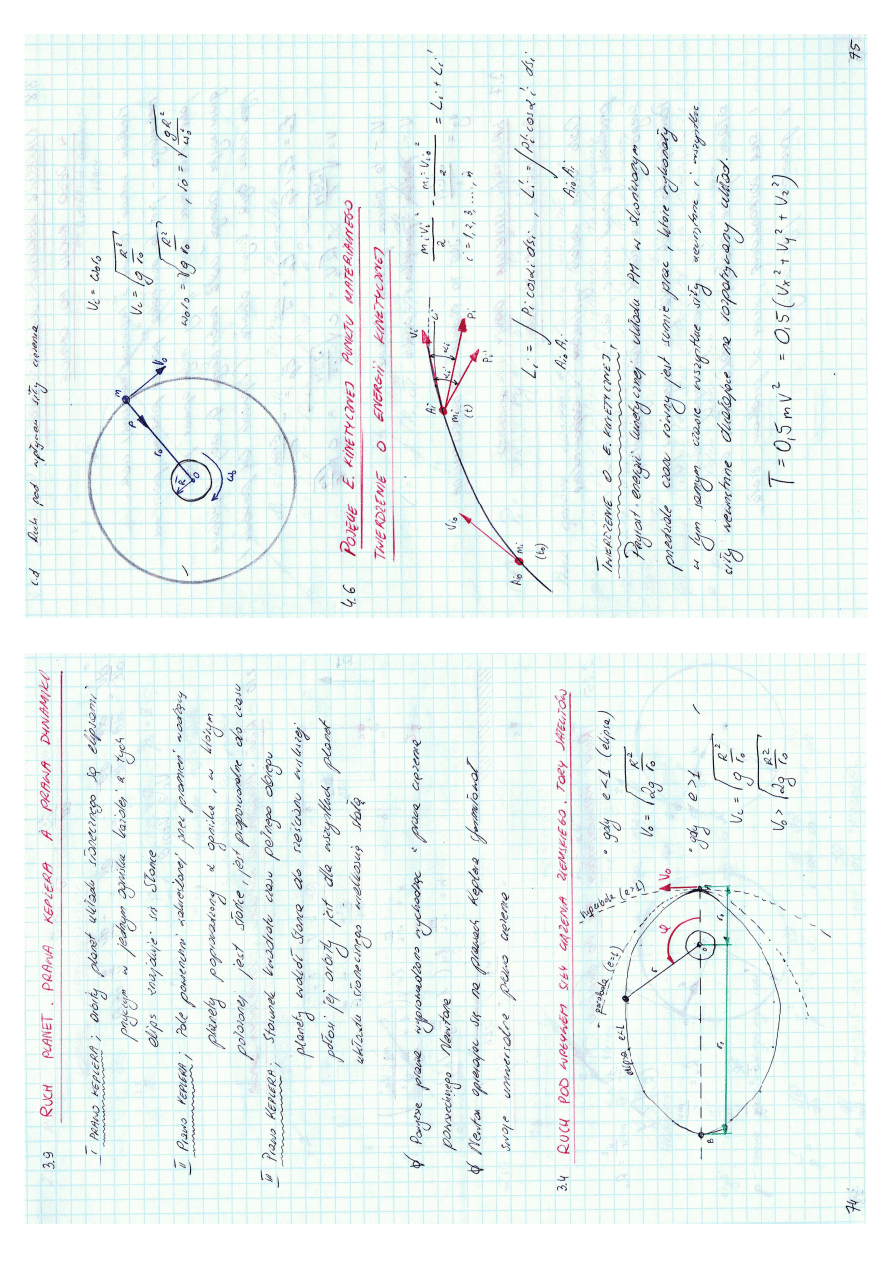 3.9 RUCH PLANET. PRAWA KEPLERA A PRAWA DYNAMIKI
I PRAWO KEPLERA; orbity planet układu słonecznego są elipsami
przyczym w jednym ognisku każdej z tych
elips znajduje się Słońce
II Prawo KEPLERA; Pole powierzchni zakreślonej przez promień wodzący
planety poprowadzony z ogniska, w którym
położone jest słońce, jest proporcjonalne do czasu
III Prawo KEPLERA; Stosunek kwadratu czasu pełnego obiegu
planety wokół Słońca do sześcianu większej
półosi jej orbity jest dla wszystkich planet
układu słonecznego wielkością stałą
Powyższe prawa wyprowadzono wychodząc z prawa ciążenia
powszechnego Newtona
Newton opierając się na prawach Keplera sformułował
swoje uniwersalne prawo ciążenia
3.4 RUCH POD WPŁYWEM SIŁY CIĄŻENIA ZIEMSKIEGO. TORY SATELITÓW
elipsa e<1
parabola (e=1)
hyperbola (e>1)
r
φ
V₀
A
B
0
r₁
r₁
" gdy e<1 (elipsa)
V₀ = √(2g R²/r₀)
" gdy e>1
Vc = √(g R²/r₀)
V₀ > √(2g R²/r₀)
74
cd Ruch pod wpływem siły ciążenia
m
V₀
P
r₀
R
0
ω₀
Vc = ω₀r₀
Vc = √(g R²/r₀)
ω₀r₀ = √(g R²/r₀), r₀ = √(gR²/ω₀²)
4.6 POJĘCIE E. KINETYCZNEJ PUNKTU MATERIALNEGO
TWIERDZENIE O ENERGII KINETYCZNEJ
Ai₀
mi
(t₀)
Vi₀
Ai
mi
(t)
Vi
αi
αi'
Pi
Pi'
miVi²/2 - miVi₀²/2 = Li + Li'
i = 1, 2, 3, ..., n
Li = ∫ Pi cosαi dsi, Li' = ∫ Pi' cosαi' dsi
Ai₀ Ai Ai₀ Ai
TWIERDZENIE O E. KINETYCZNEJ;
Przyrost energii kinetycznej układu PM w skończonym
przedziale czasu równy jest sumie prac, które wykonały
w tym samym czasie wszystkie siły zewnętrzne i wszystkie
siły wewnętrzne działające na rozpatrywany układ.
T = 0,5 mV² = 0,5 (Vx² + Vy² + Vz²)
75